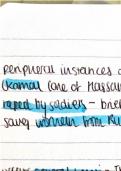 peripheral instances o
(Kamal (one of Hassan
raped by soldiers - brie
saves women from Ru